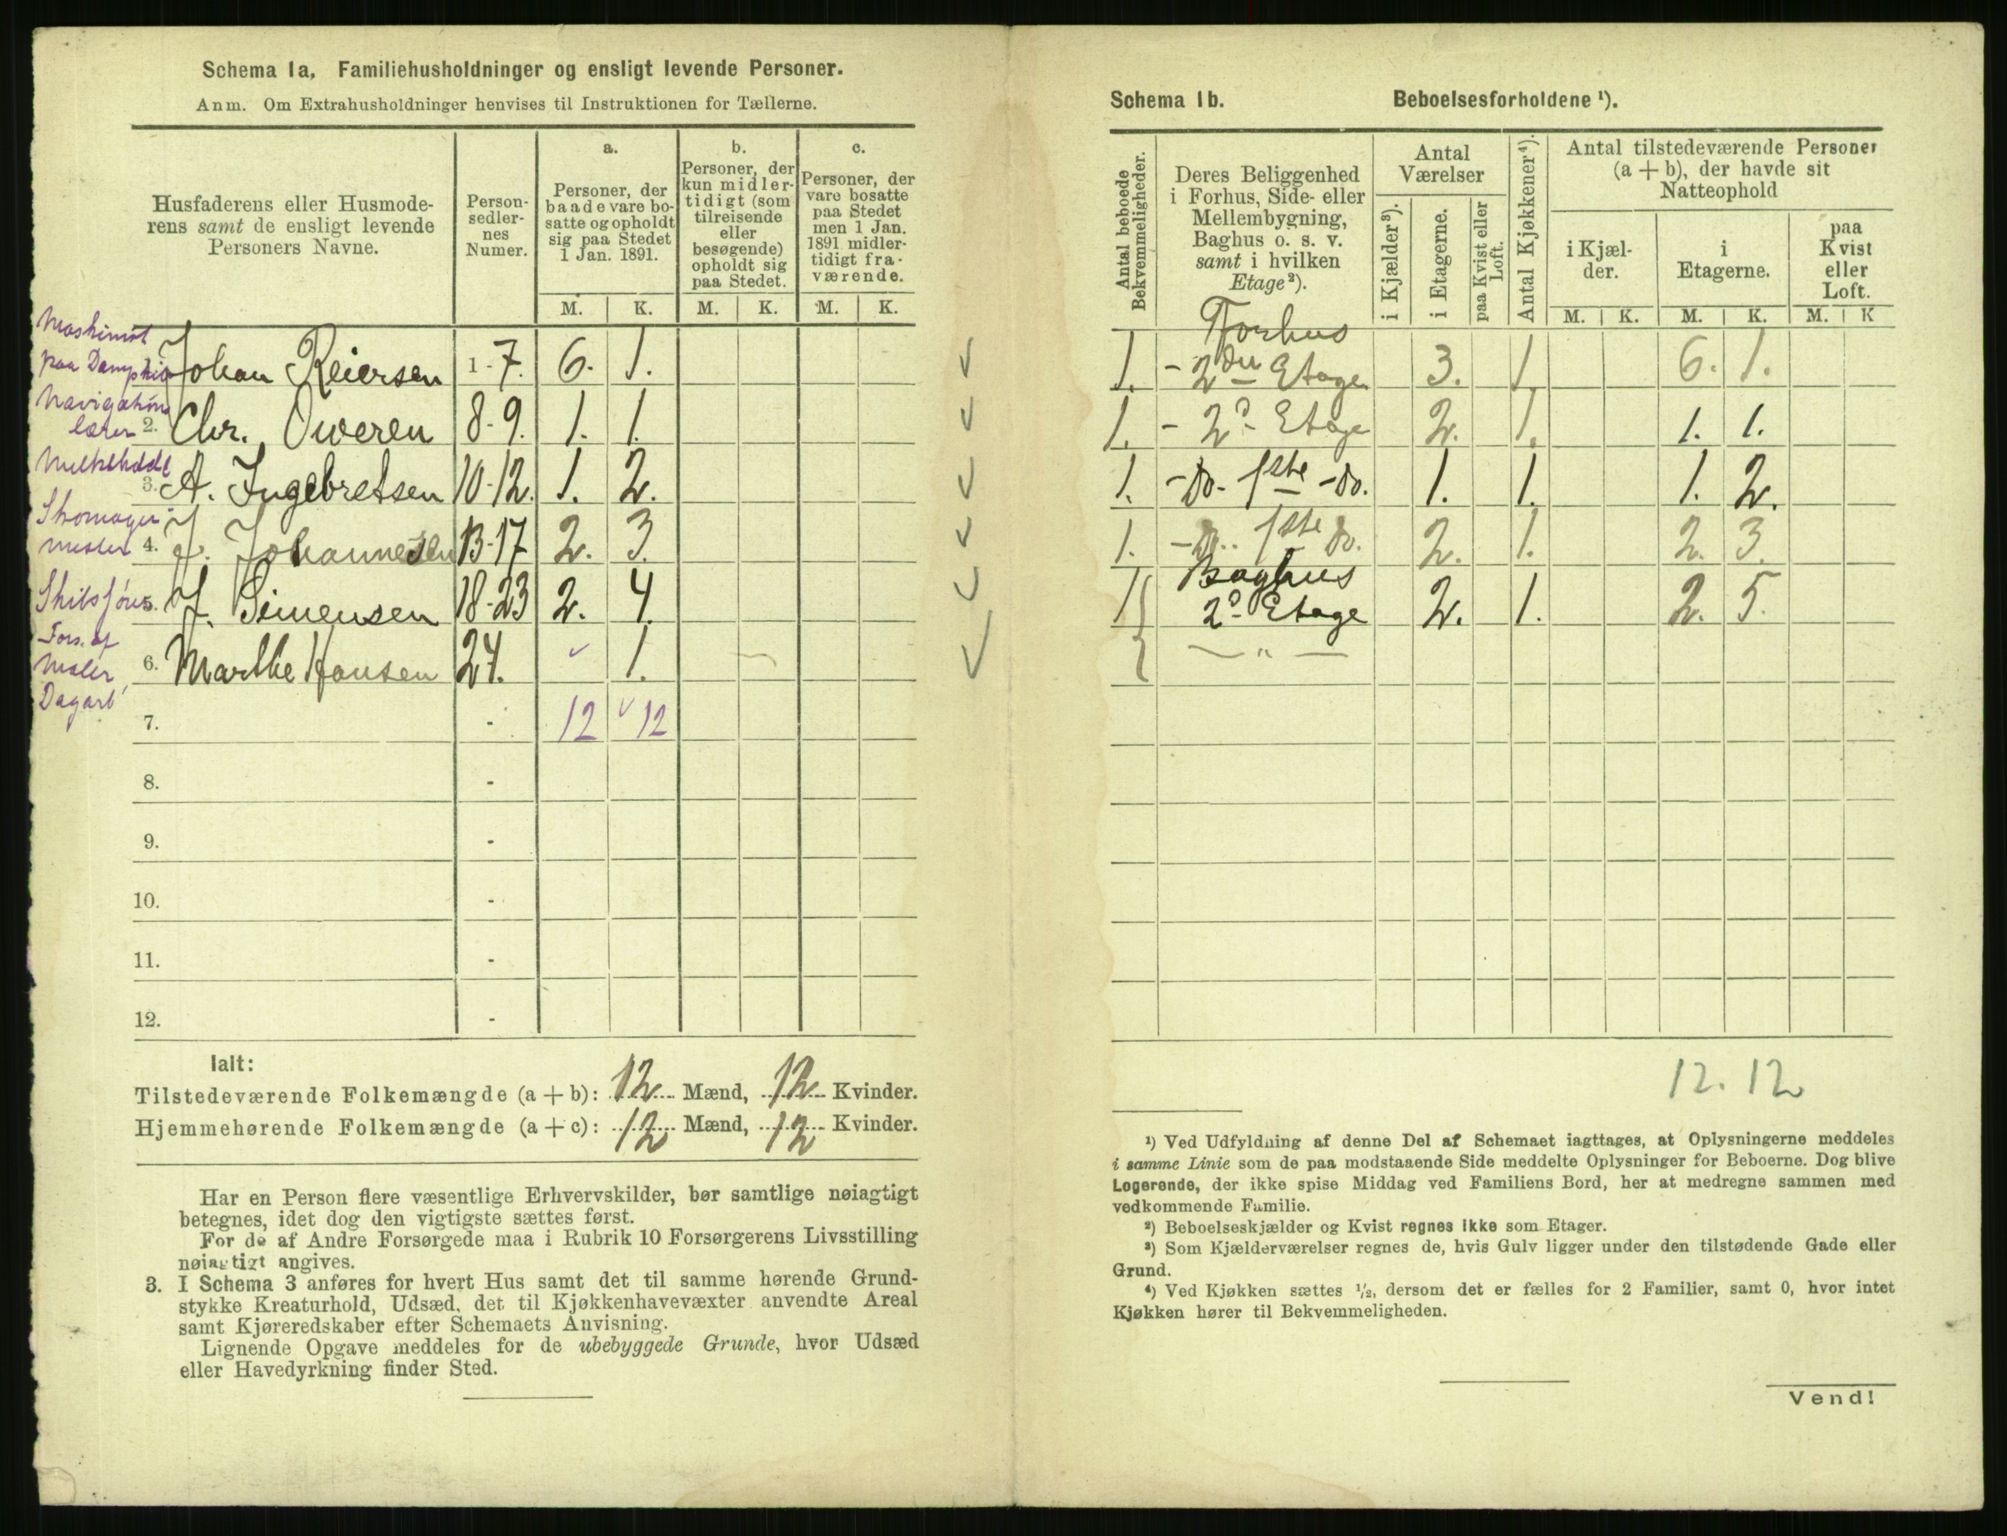 Schema 1a, Familiehusholdninger og ensligt levende Personer.
Anm. Om Extrahusholdninger henvises til Instruktionen for Tællerne.
Husfaderens eller Husmode-
rens samt de ensligt levende
Personers Navne.
Person-
sedler-
nes
Numer.
a.
Personer, der
baade vare bo-
satte og opholdt
sig paa Stedet
1 Jan. 1891.
b.
Personer, der
kun midler-
tidigt (som
tilreisende
eller
besøgende)
opholdt sig
paa Stedet.
c.
Personer, der
vare bosatte
paa Stedet
men 1 Jan.
1891 midler-
tidigt fra-
værende.
M. K. M. K. M. K.
Maskinist
paa Dampskib Johan Reiersen 1-7. 6. 1.
Navigations
lærer 2. Chr. Oweren 8-9. 1. 1.
Melkehdl 3. A. Ingebretsen 10-12. 1. 2.
Skomager
mester 4. J. Johannesen 13-17 2. 3.
Skibsfører 5. J. Simensen 18-23 2. 4.
Fors. af
Maler
Dagarb 6. Marthe Hansen 24. 1.
7. - 12 12
8. -
9. -
10. -
11. -
12. -
Ialt:
Tilstedeværende Folkemængde (a + b): 12 Mænd, 12 Kvinder.
Hjemmehørende Folkemængde (a + c): 12 Mænd, 12 Kvinder.
Har en Person flere væsentlige Erhvervskilder, bør samtlige nøiagtigt
betegnes, idet dog den vigtigste sættes først.
For de af Andre Forsørgede maa i Rubrik 10 Forsørgerens Livsstilling
nøiagtigt angives.
3. I Schema 3 anføres for hvert Hus samt det til samme hørende Grund-
stykke Kreaturhold, Udsæd, det til Kjøkkenhavevæxter anvendte Areal
samt Kjøreredskaber efter Schemaets Anvisning.
Lignende Opgave meddeles for de ubebyggede Grunde, hvor Udsæd
eller Havedyrkning finder Sted.
Schema 1b. Beboelsesforholdene ¹).
Antal beboede
Bekvemmeligheder.
Deres Beliggenhed
i Forhus, Side- eller
Mellembygning,
Baghus o. s. v.
samt i hvilken
Etage²).
Antal
Værelser
i Kjælder³).
i Etagerne.
paa Kvist eller
Loft.
Antal Kjøkkener⁴).
Antal tilstedeværende Personer
(a + b), der havde sit
Natteophold
i Kjæl-
der.
i
Etagerne.
paa
Kvist
eller
Loft.
M. K. M. K. M. K
Forhus
1. - 2den Etage 3. 1. 6. 1.
1. - 2d- Etage 2. 1. 1. 1.
1. -do- 1ste -do. 1. 1. 1. 2.
1. -do.- 1ste do. 2. 1. 2. 3.
Baghus
1 2d- Etage 2. 1. 2. 5.
— " —
12. 12
¹) Ved Udfyldning af denne Del af Schemaet iagttages, at Oplysningerne meddeles
i samme Linie som de paa modstaaende Side meddelte Oplysninger for Beboerne. Dog blive
Logerende, der ikke spise Middag ved Familiens Bord, her at medregne sammen med
vedkommende Familie.
²) Beboelseskjælder og Kvist regnes ikke som Etager.
³) Som Kjælderværelser regnes de, hvis Gulv ligger under den tilstødende Gade eller
Grund.
⁴) Ved Kjøkken sættes ½, dersom det er fælles for 2 Familier, samt 0, hvor intet
Kjøkken hører til Bekvemmeligheden.
Vend!